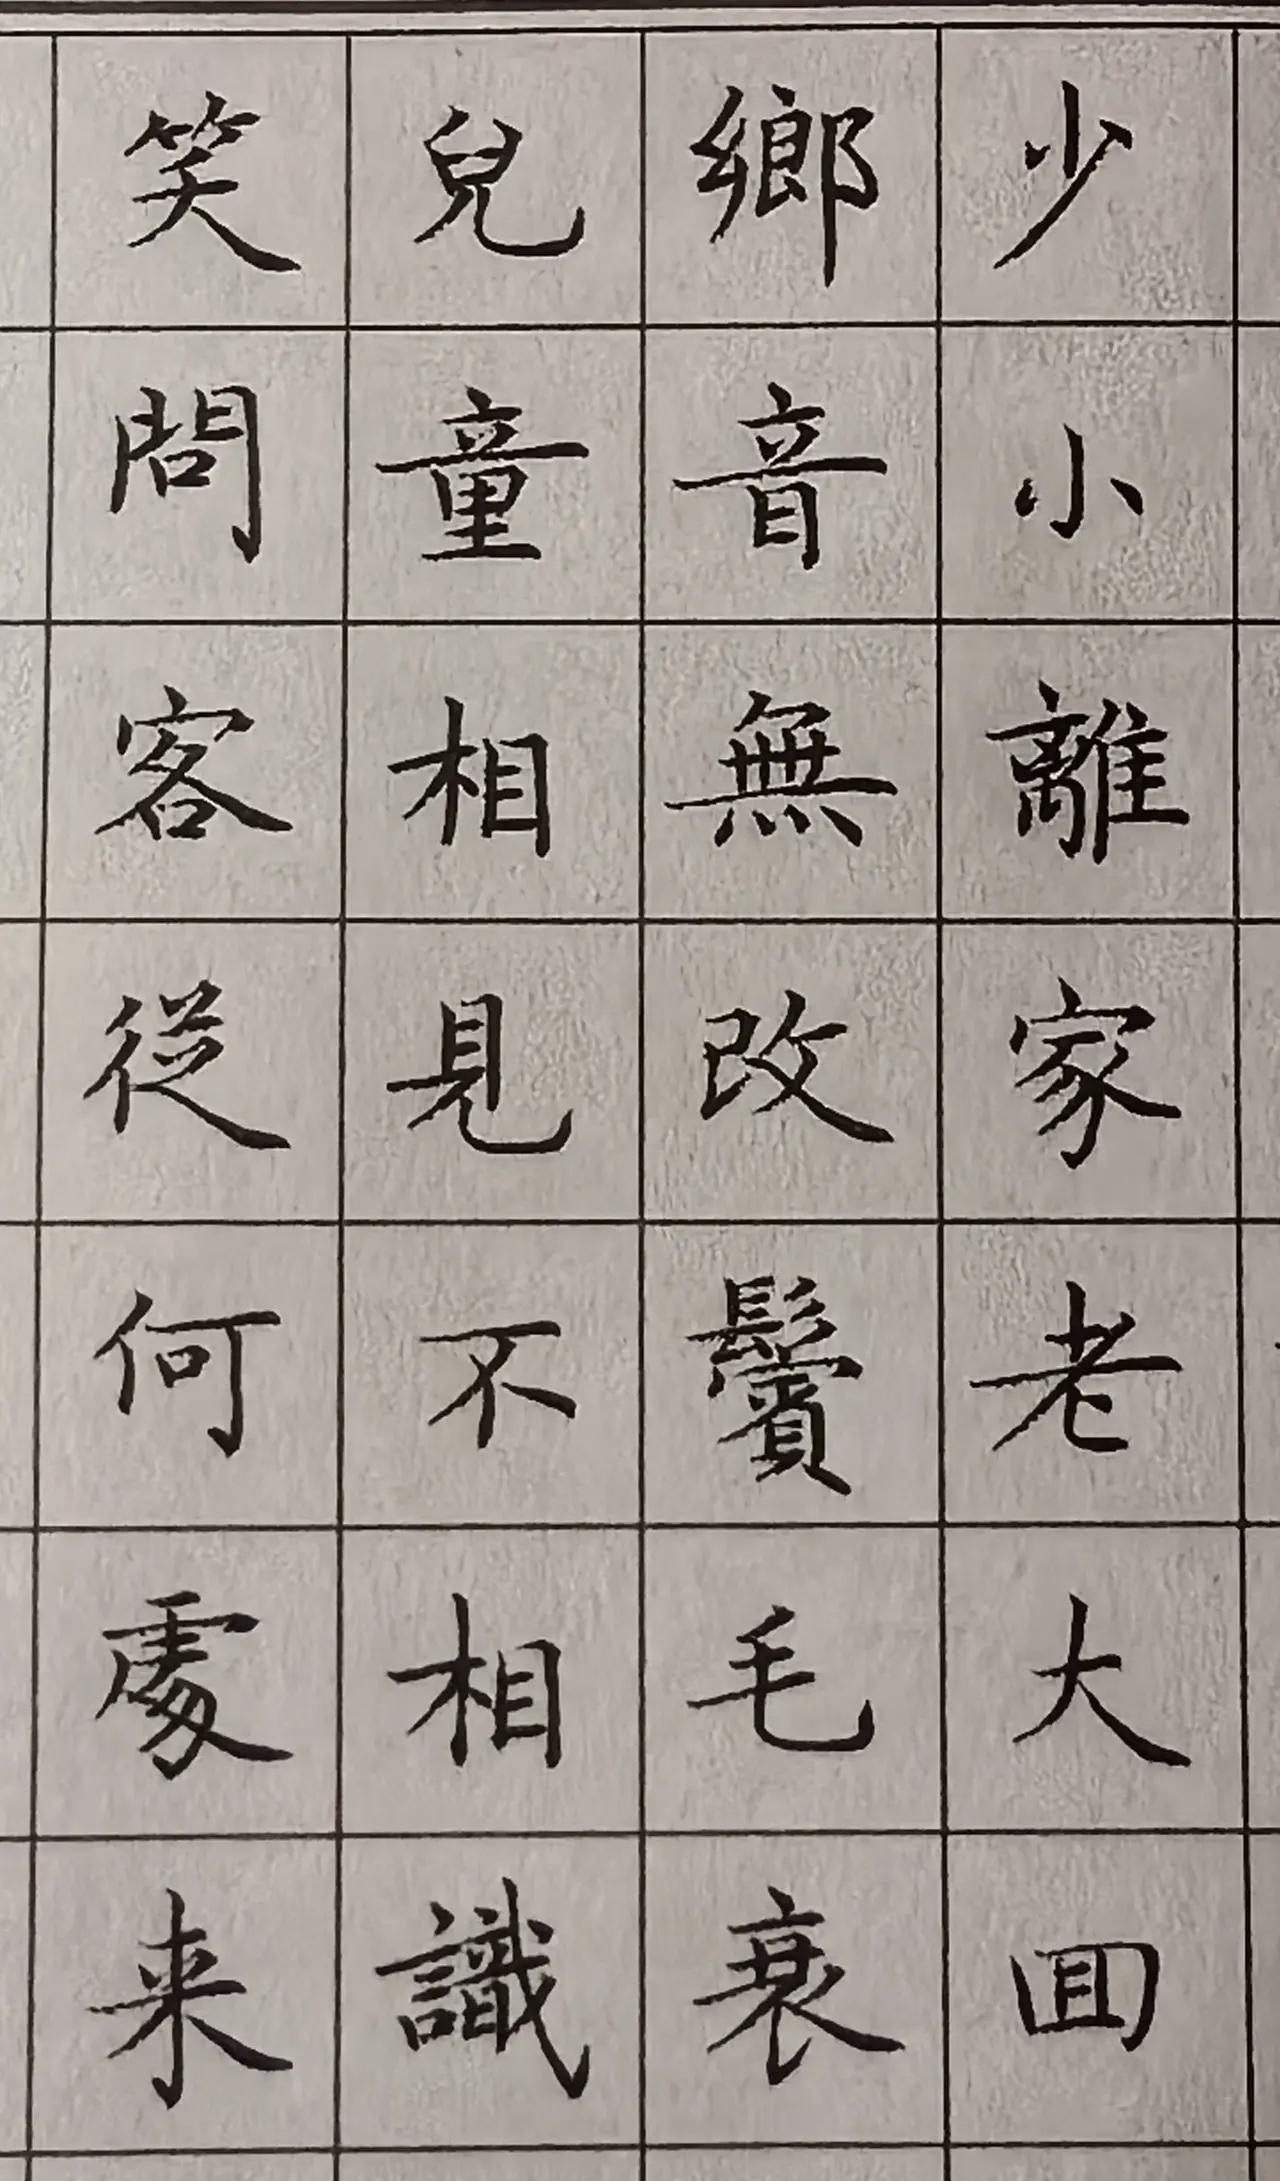 少小離家老大囬
鄉音無改鬢毛衰
兒童相見不相識
笑問客從何處来